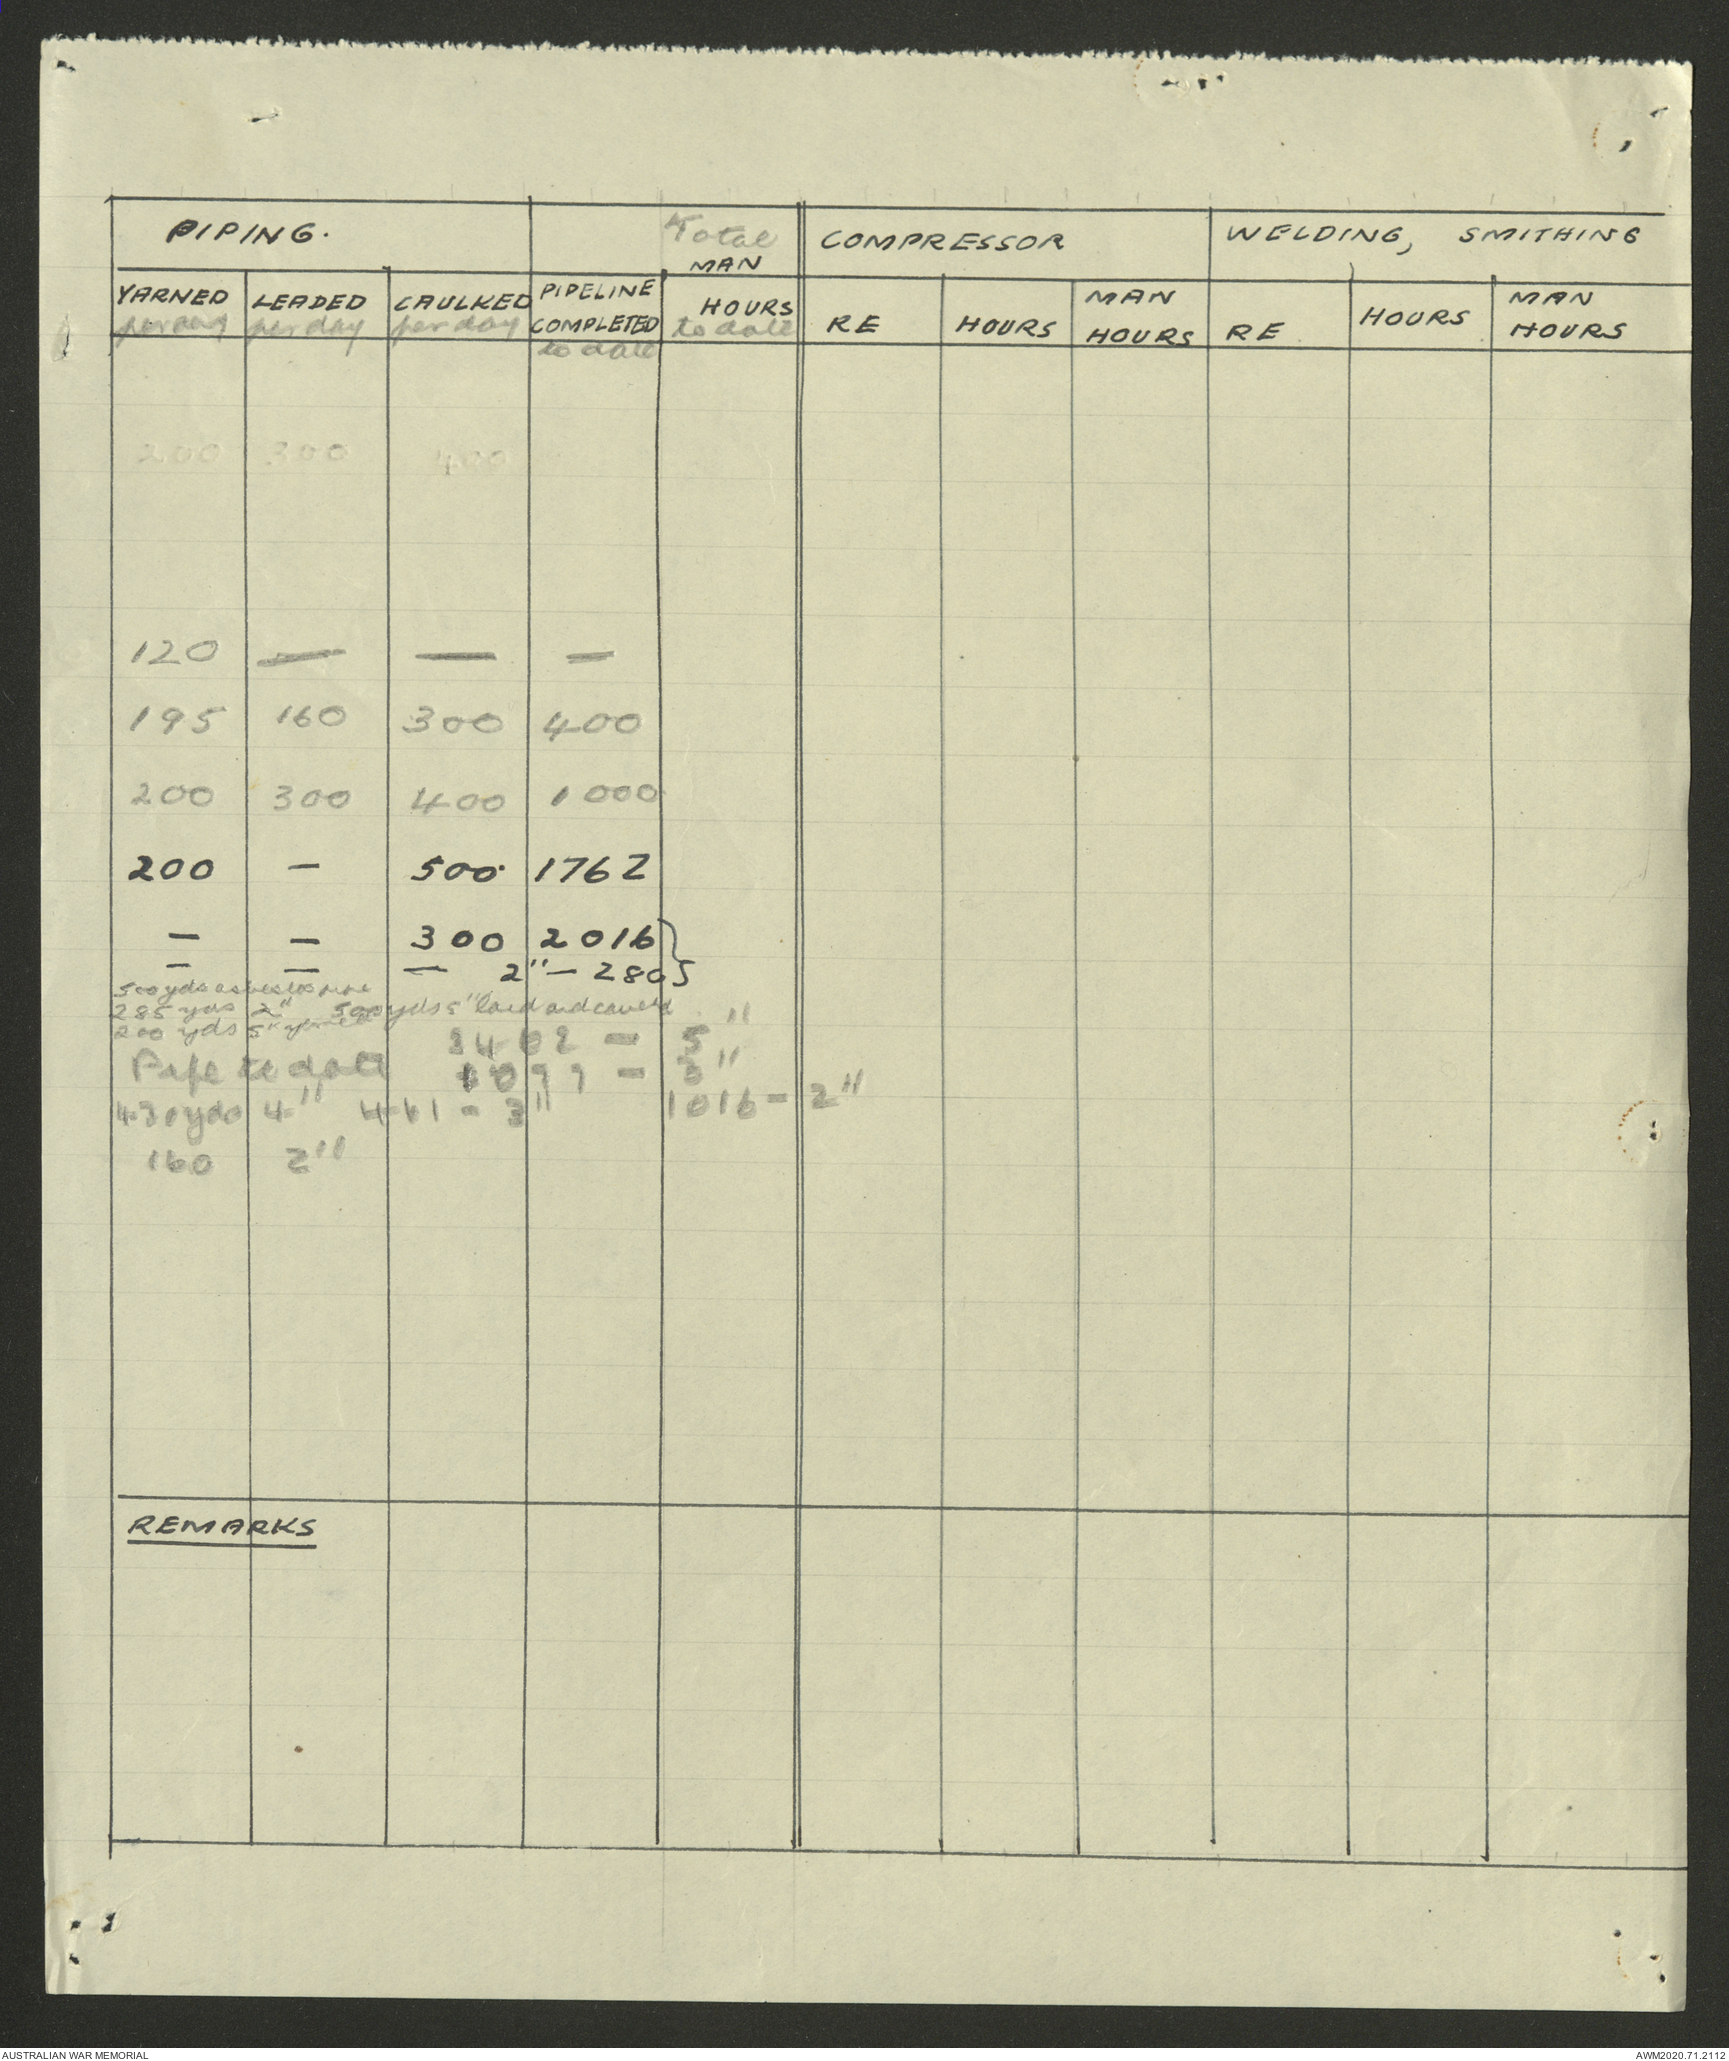 PIPING.
Total
MAN
HOURS
to date
COMPRESSOR
WELDING, SMITHING
YARNED
per day
LEADED
per day
CAULKED
per day
PIPELINE
COMPLETED
to date
RE
HOURS
MAN
HOURS
RE
HOURS
MAN
HOURS
200 300 400
120 — — —
195 160 300 400
200 300 400 1000
200 — 500 1762
— — 300 2016 }
— — — 2" — 280
500 yds asbestos
285 yds 2" 500 yds 5" laid and
200 yds 5"
3402 - 5"
Pipe to date 1099 - 3"
430 yds 4" 461 - 3" 1016 - 2"
160 2"
REMARKS
AUSTRALIAN WAR MEMORIAL
AWM2020.71.2112